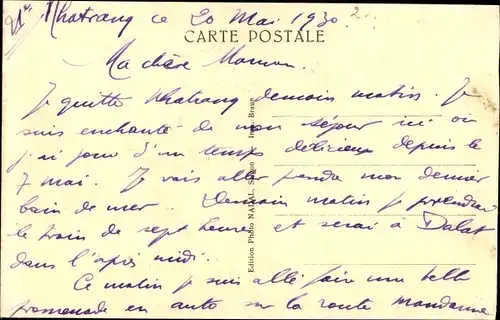 Nhatrang ce 20 Mai 1930
CARTE POSTALE
Ma chère Maman.
Je quitte Nhatrang demain matin. Je
suis enchanté de mon séjour ici où
j'ai joui d'un temps délicieux depuis le
7 mai. Je vais aller prendre mon dernier
bain de mer. Demain matin je prendrai
le train de sept heures et serai à Dalat
dans l'après midi.
Ce matin je suis allé faire une belle
promenade en auto sur la route mandarine
Edition Photo NADAL, Saigon Imp. Braun